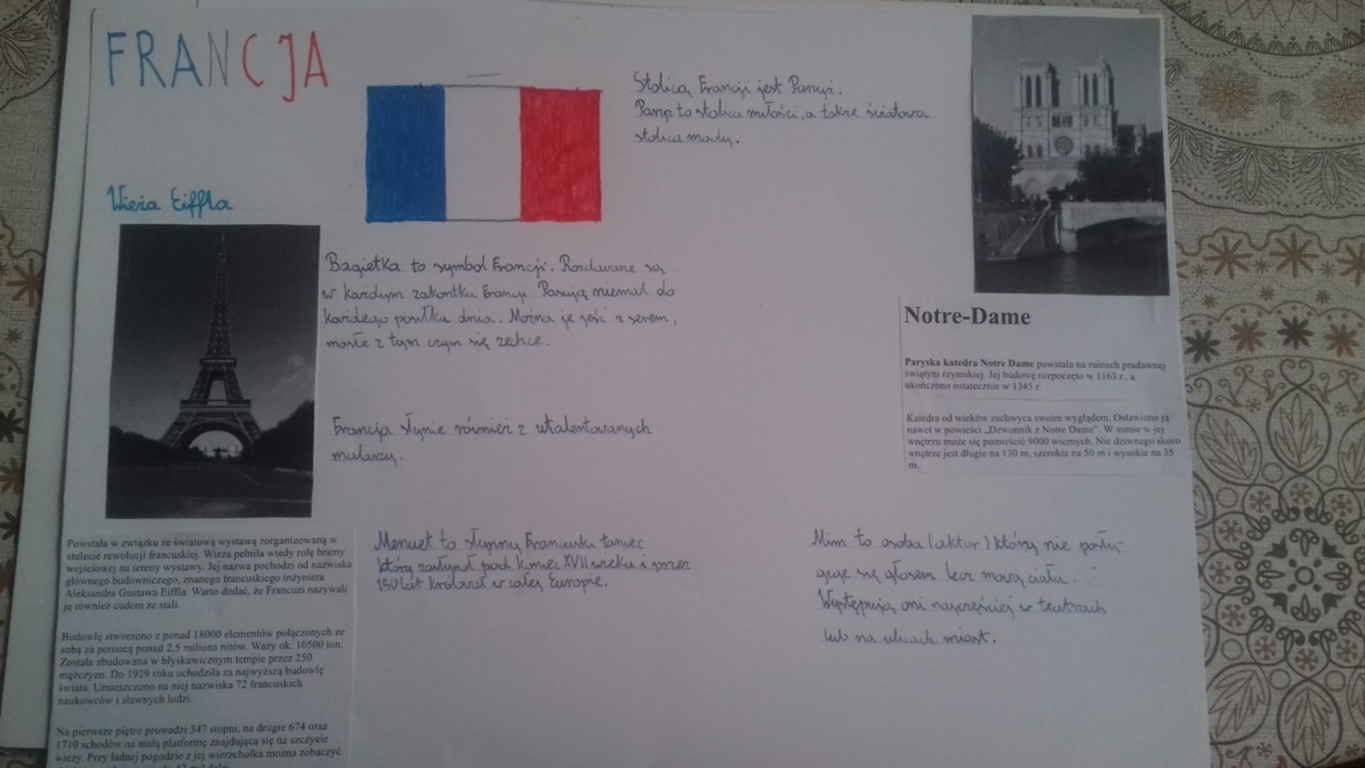 FRANCJA
Stolicą Francji jest Paryż.
Paryż to stolica miłości, a także światowa
stolica mody.
Wieża Eiffla
Bagietka to symbol Francji. Rozdawane są
w każdym zakontku Francji Pasują niemal do
każdego posiłku dnia. Można je jeść z serem,
masłe z tym czym się zechce.
Francja słynie również z utalentowanych
malarzy.
Notre-Dame
Paryska katedra Notre Dame powstała na ruinach pradawnej
świątyni rzymskiej. Jej budowę rozpoczęto w 1163 r., a
ukończono ostatecznie w 1345 r.
Katedra od wieków zachwyca swoim wyglądem. Ostawiono ją
nawet w powieści „Dzwonnik z Notre Dame". W sumie w jej
wnętrzu może się pomieścić 9000 wiernych. Nic dziwnego skoro
wnętrze jest długie na 130 m, szerokie na 50 m i wysokie na 35
m.
Powstała w związku ze światową wystawą zorganizowaną w
stulecie rewolucji francuskiej. Wieża pełniła wtedy rolę bramy
wejściowej na tereny wystawy. Jej nazwa pochodzi od nazwiska
głównego budowniczego, znanego francuskiego inżyniera
Aleksandra Gustawa Eiffla. Warto dodać, że Francuzi nazywali
ją również cudem ze stali.
Budowlę stworzono z ponad 18000 elementów połączonych ze
sobą za pomocą ponad 2,5 miliona nitów. Waży ok. 10500 ton.
Została zbudowana w błyskawicznym tempie przez 250
mężczyzn. Do 1929 roku uchodziła za najwyższą budowlę
świata. Umieszczono na niej nazwiska 72 francuskich
naukowców i sławnych ludzi.
Na pierwsze piętro prowadzi 347 stopni, na drugie 674 oraz
1710 schodów na małą platformę znajdującą się na szczycie
wieży. Przy ładnej pogodzie z jej wierzchołka można zobaczyć
Menuet to słynny Francuski taniec
który zasłynął pod koniec XVII wieku i przez
150 lat królował w całej Europie.
Mim to osoba (aktor) który nie posłu-
guje się głosem lecz mową ciała.
Występują oni najczęściej w teatrach
lub na ulicach miast.